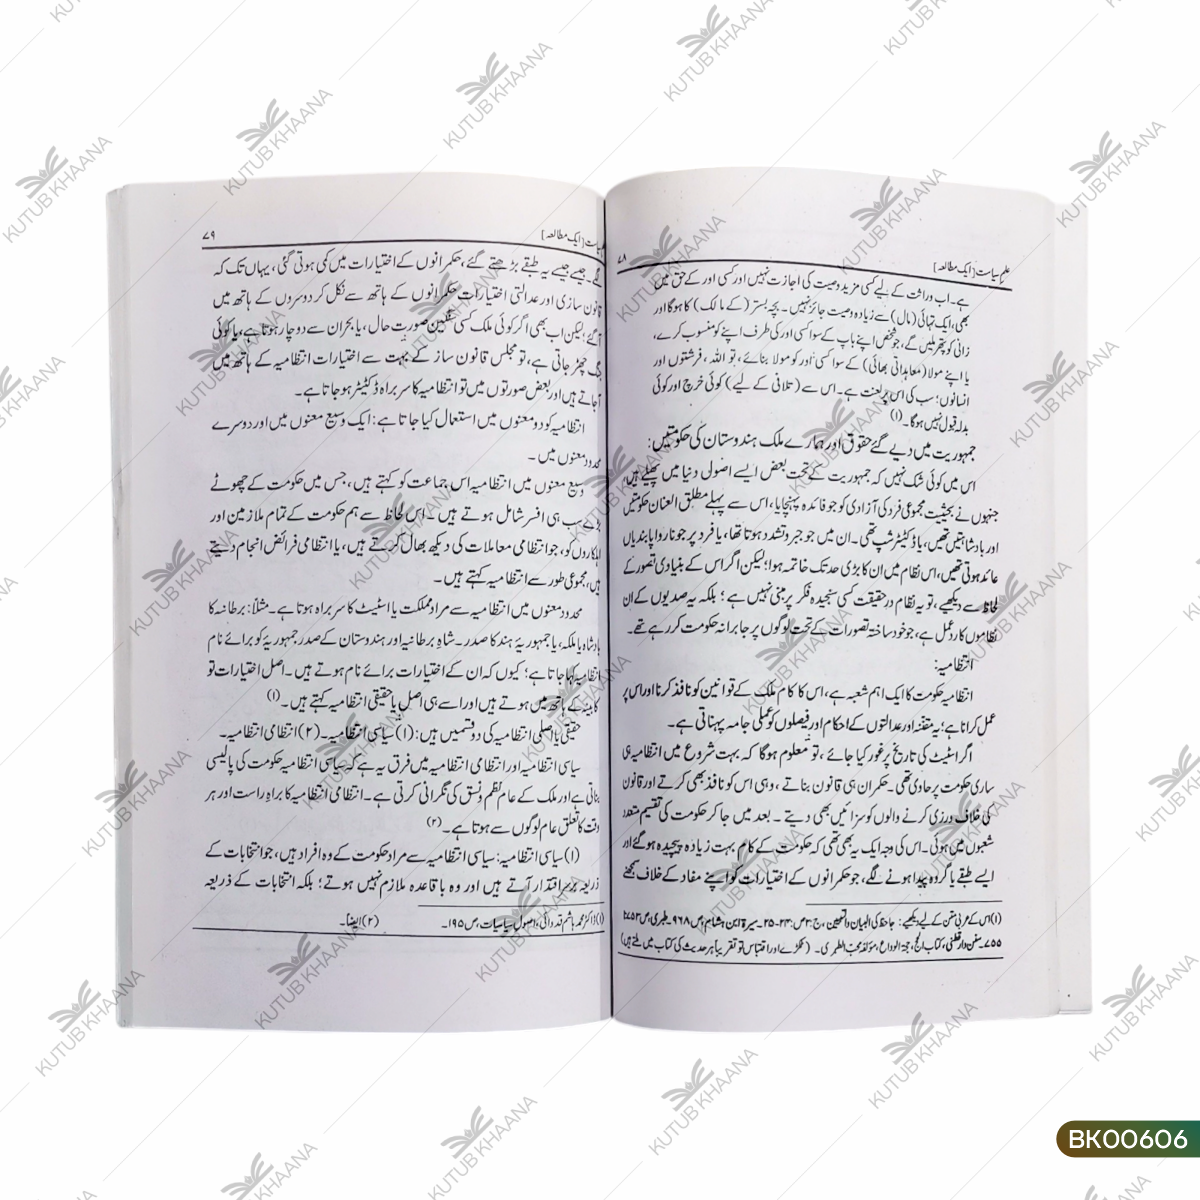 علم سیاست [ایک مطالعہ]
۷۸
ہے۔ اب وراثت کے لیے کسی مزید وصیت کی اجازت نہیں اور کسی اور کے حق میں
بھی، ایک تہائی (مال) سے زیادہ وصیت جائز نہیں۔ بچہ بستر (کے مالک) کا ہوگا اور
زانی کو پتھر ملیں گے، جو شخص اپنے باپ کے سوا کسی اور کی طرف اپنے کو منسوب کرے،
یا اپنے مولا (معاہداتی بھائی) کے سوا کسی اور کو مولا بنائے، تو اللہ، فرشتوں اور
انسانوں؛ سب کی اس پر لعنت ہے۔ اس سے (تلافی کے لیے) کوئی خرچ اور کوئی
بدلہ قبول نہیں ہوگا۔(۱)
جمہوریت میں دیے گئے حقوق اور ہمارے ملک ہندوستان کی حکومتیں:
اس میں کوئی شک نہیں کہ جمہوریت کے تحت بعض ایسے اصول دنیا میں پھیلے ہیں،
جنہوں نے بحیثیت مجموعی فرد کی آزادی کو جو فائدہ پہنچایا، اس سے پہلے مطلق العنان حکومتیں
اور بادشاہتیں تھیں، یا ڈکٹیٹر شپ تھی۔ ان میں جو جبر و تشدد ہوتا تھا، یا فرد پر جو ناروا پابندیاں
عائد ہوتی تھیں، اس نظام میں ان کا بڑی حد تک خاتمہ ہوا؛ لیکن اگر اس کے بنیادی تصور کے
لحاظ سے دیکھیے، تو یہ نظام درحقیقت کسی سنجیدہ فکر پر مبنی نہیں ہے؛ بلکہ یہ صدیوں کے ان
نظاموں کا ردعمل ہے، جو خود ساختہ تصورات کے تحت لوگوں پر جابرانہ حکومت کر رہے تھے۔
انتظامیہ:
انتظامیہ حکومت کا ایک اہم شعبہ ہے، اس کا کام ملک کے قوانین کو نافذ کرنا اور اس پر
عمل کرانا ہے؛ یہ مقننہ اور عدالتوں کے احکام اور فیصلوں کو عملی جامہ پہناتی ہے۔
اگر اسٹیٹ کی تاریخ پر غور کیا جائے، تو معلوم ہوگا کہ بہت شروع میں انتظامیہ ہی
ساری حکومت پر حاوی تھی۔ حکمران ہی قانون بناتے، وہی اس کو نافذ بھی کرتے اور قانون
کی خلاف ورزی کرنے والوں کو سزائیں بھی دیتے۔ بعد میں جا کر حکومت کی تقسیم متعدد
شعبوں میں ہوئی۔ اس کی وجہ ایک یہ بھی تھی کہ حکومت کے کام بہت زیادہ پیچیدہ ہو گئے اور
ایسے طبقے یا گروہ پیدا ہونے لگے، جو حکمرانوں کے اختیارات کو اپنے مفاد کے خلاف سمجھنے
(۱) اس کے عربی متن کے لیے دیکھیے: جاحظ کی البیان والتبیین، ج:۲، ص:۲۴-۲۵۔ سیرۃ ابن ہشام، ص:۹۶۸۔ طبری، ص:۱۷۵۳
۷۵۵۔ سنن دار قطنی، کتاب الحج، حجۃ الوداع، مؤلفہ محب الطبری۔ (ٹکڑے اور اقتباس تو تقریباً ہر حدیث کی کتاب میں ملتے ہیں)
سیاست [ایک مطالعہ]
۷۹
لگے۔ جیسے جیسے یہ طبقے بڑھتے گئے، حکمرانوں کے اختیارات میں کمی ہوتی گئی، یہاں تک کہ
قانون سازی اور عدالتی اختیارات حکمرانوں کے ہاتھ سے نکل کر دوسروں کے ہاتھ میں
آ گئے؛ لیکن اب بھی اگر کوئی ملک کسی سنگین صورت حال، یا بحران سے دوچار ہوتا ہے، یا کوئی
جنگ چھڑ جاتی ہے، تو مجلس قانون ساز کے بہت سے اختیارات انتظامیہ کے ہاتھ میں
آ جاتے ہیں اور بعض صورتوں میں تو انتظامیہ کا سربراہ ڈکٹیٹر ہو جاتا ہے۔
انتظامیہ کو دو معنوں میں استعمال کیا جاتا ہے: ایک وسیع معنوں میں اور دوسرے
محدود معنوں میں۔
وسیع معنوں میں انتظامیہ اس جماعت کو کہتے ہیں، جس میں حکومت کے چھوٹے
بڑے سب ہی افسر شامل ہوتے ہیں۔ اس لحاظ سے ہم حکومت کے تمام ملازمین اور
اہلکاروں کو، جو انتظامی معاملات کی دیکھ بھال کرتے ہیں، یا انتظامی فرائض انجام دیتے
ہیں، مجموعی طور سے انتظامیہ کہتے ہیں۔
محدود معنوں میں انتظامیہ سے مراد مملکت یا اسٹیٹ کا سربراہ ہوتا ہے۔ مثلاً: برطانیہ کا
بادشاہ یا ملکہ، یا جمہوریۂ ہند کا صدر۔ شاہِ برطانیہ اور ہندوستان کے صدر جمہوریہ کو برائے نام
انتظامیہ کہا جاتا ہے؛ کیوں کہ ان کے اختیارات برائے نام ہوتے ہیں۔ اصل اختیارات تو
کابینہ کے ہاتھ میں ہوتے ہیں اور اسے ہی اصل یا حقیقی انتظامیہ کہتے ہیں۔(۱)
حقیقی یا اصلی انتظامیہ کی دو قسمیں ہیں: (۱) سیاسی انتظامیہ۔ (۲) انتظامی انتظامیہ۔
سیاسی انتظامیہ اور انتظامی انتظامیہ میں فرق یہ ہے کہ سیاسی انتظامیہ حکومت کی پالیسی
بناتی ہے اور ملک کے عام نظم و نسق کی نگرانی کرتی ہے۔ انتظامی انتظامیہ کا براہ راست اور ہر
وقت کا تعلق عام لوگوں سے ہوتا ہے۔(۲)
(۱) سیاسی انتظامیہ: سیاسی انتظامیہ سے مراد حکومت کے وہ افراد ہیں، جو انتخابات کے
ذریعہ برسر اقتدار آتے ہیں اور وہ باقاعدہ ملازم نہیں ہوتے؛ بلکہ انتخابات کے ذریعہ
(۱) ڈاکٹر محمد ہاشم قدوائی، اصول سیاسیات، ص:۱۹۵۔ (۲) ایضاً۔
KUTUB KHAANA
BK00606